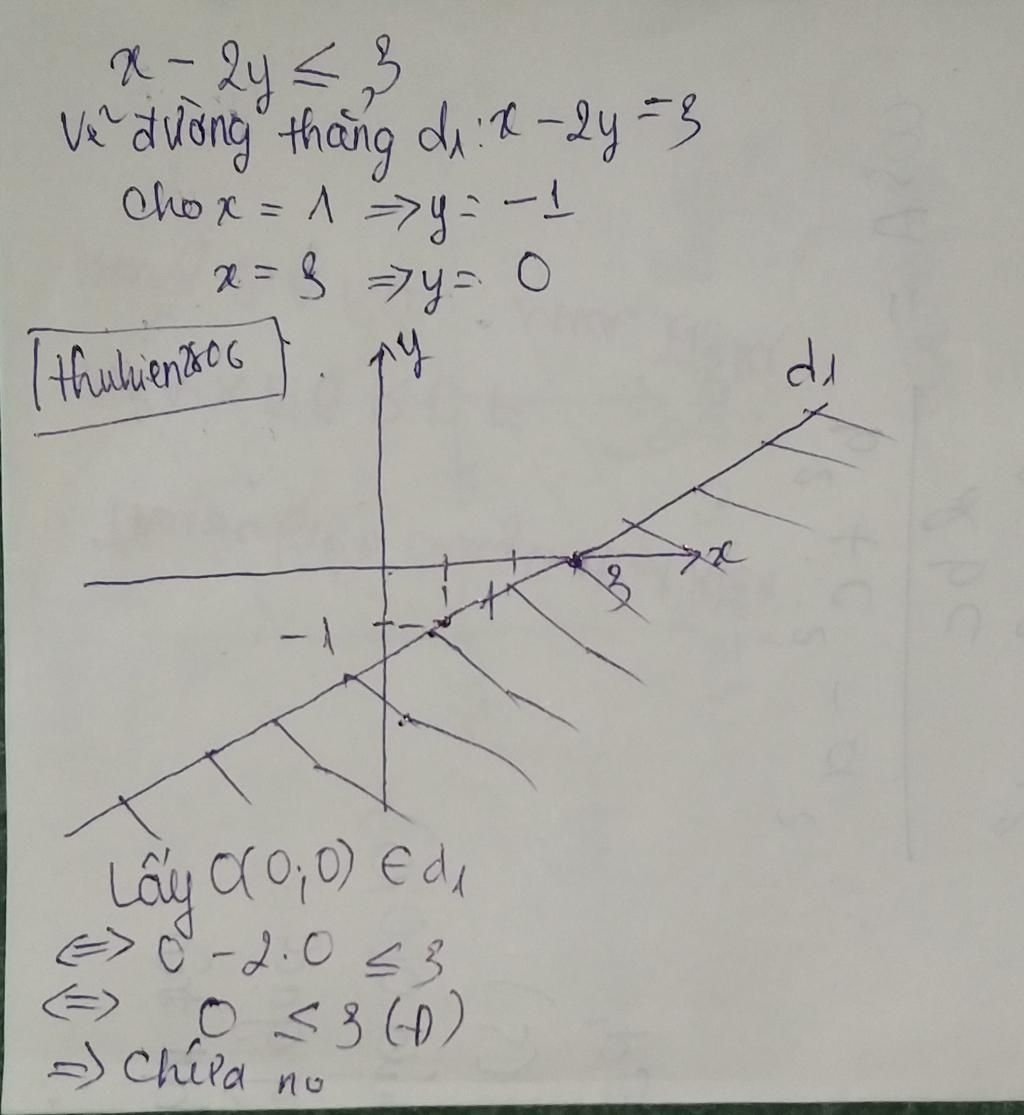 x - 2y ≤ 3
Vẽ đường thẳng d1: x - 2y = 3
Cho x = 1 => y = -1
x = 3 => y = 0
thuhien2806
y
d1
x
3
-1
Lấy O(0;0) ∈ d1
<=> 0 - 2.0 ≤ 3
<=> 0 ≤ 3 (Đ)
=> Chứa no